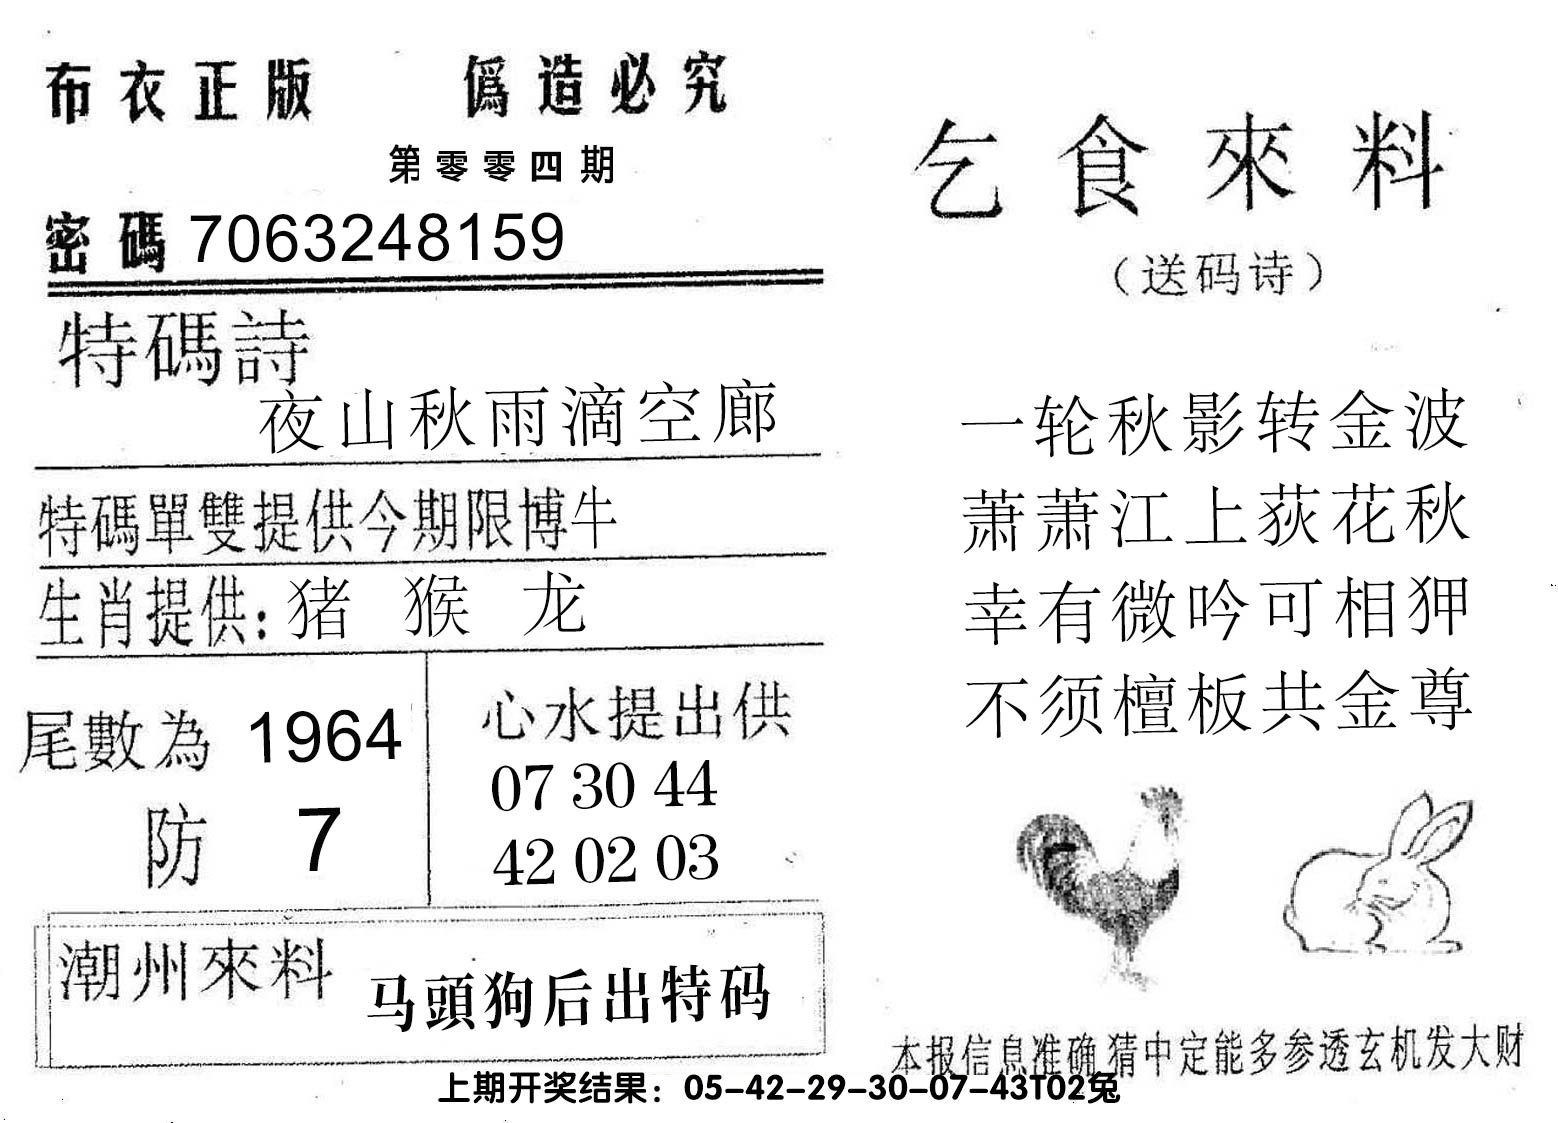 布衣正版 僞造必究
第零零四期
密碼 7063248159
特碼詩
夜山秋雨滴空廊
特碼單雙提供今期限博牛
生肖提供: 猪 猴 龙
尾數為 1964
防 7
心水提出供
07 30 44
42 02 03
潮州來料 马頭狗后出特码
乞食來料
（送码诗）
一轮秋影转金波
萧萧江上荻花秋
幸有微吟可相狎
不须檀板共金尊
本报信息准确猜中定能多参透玄机发大财
上期开奖结果：05-42-29-30-07-43T02兔